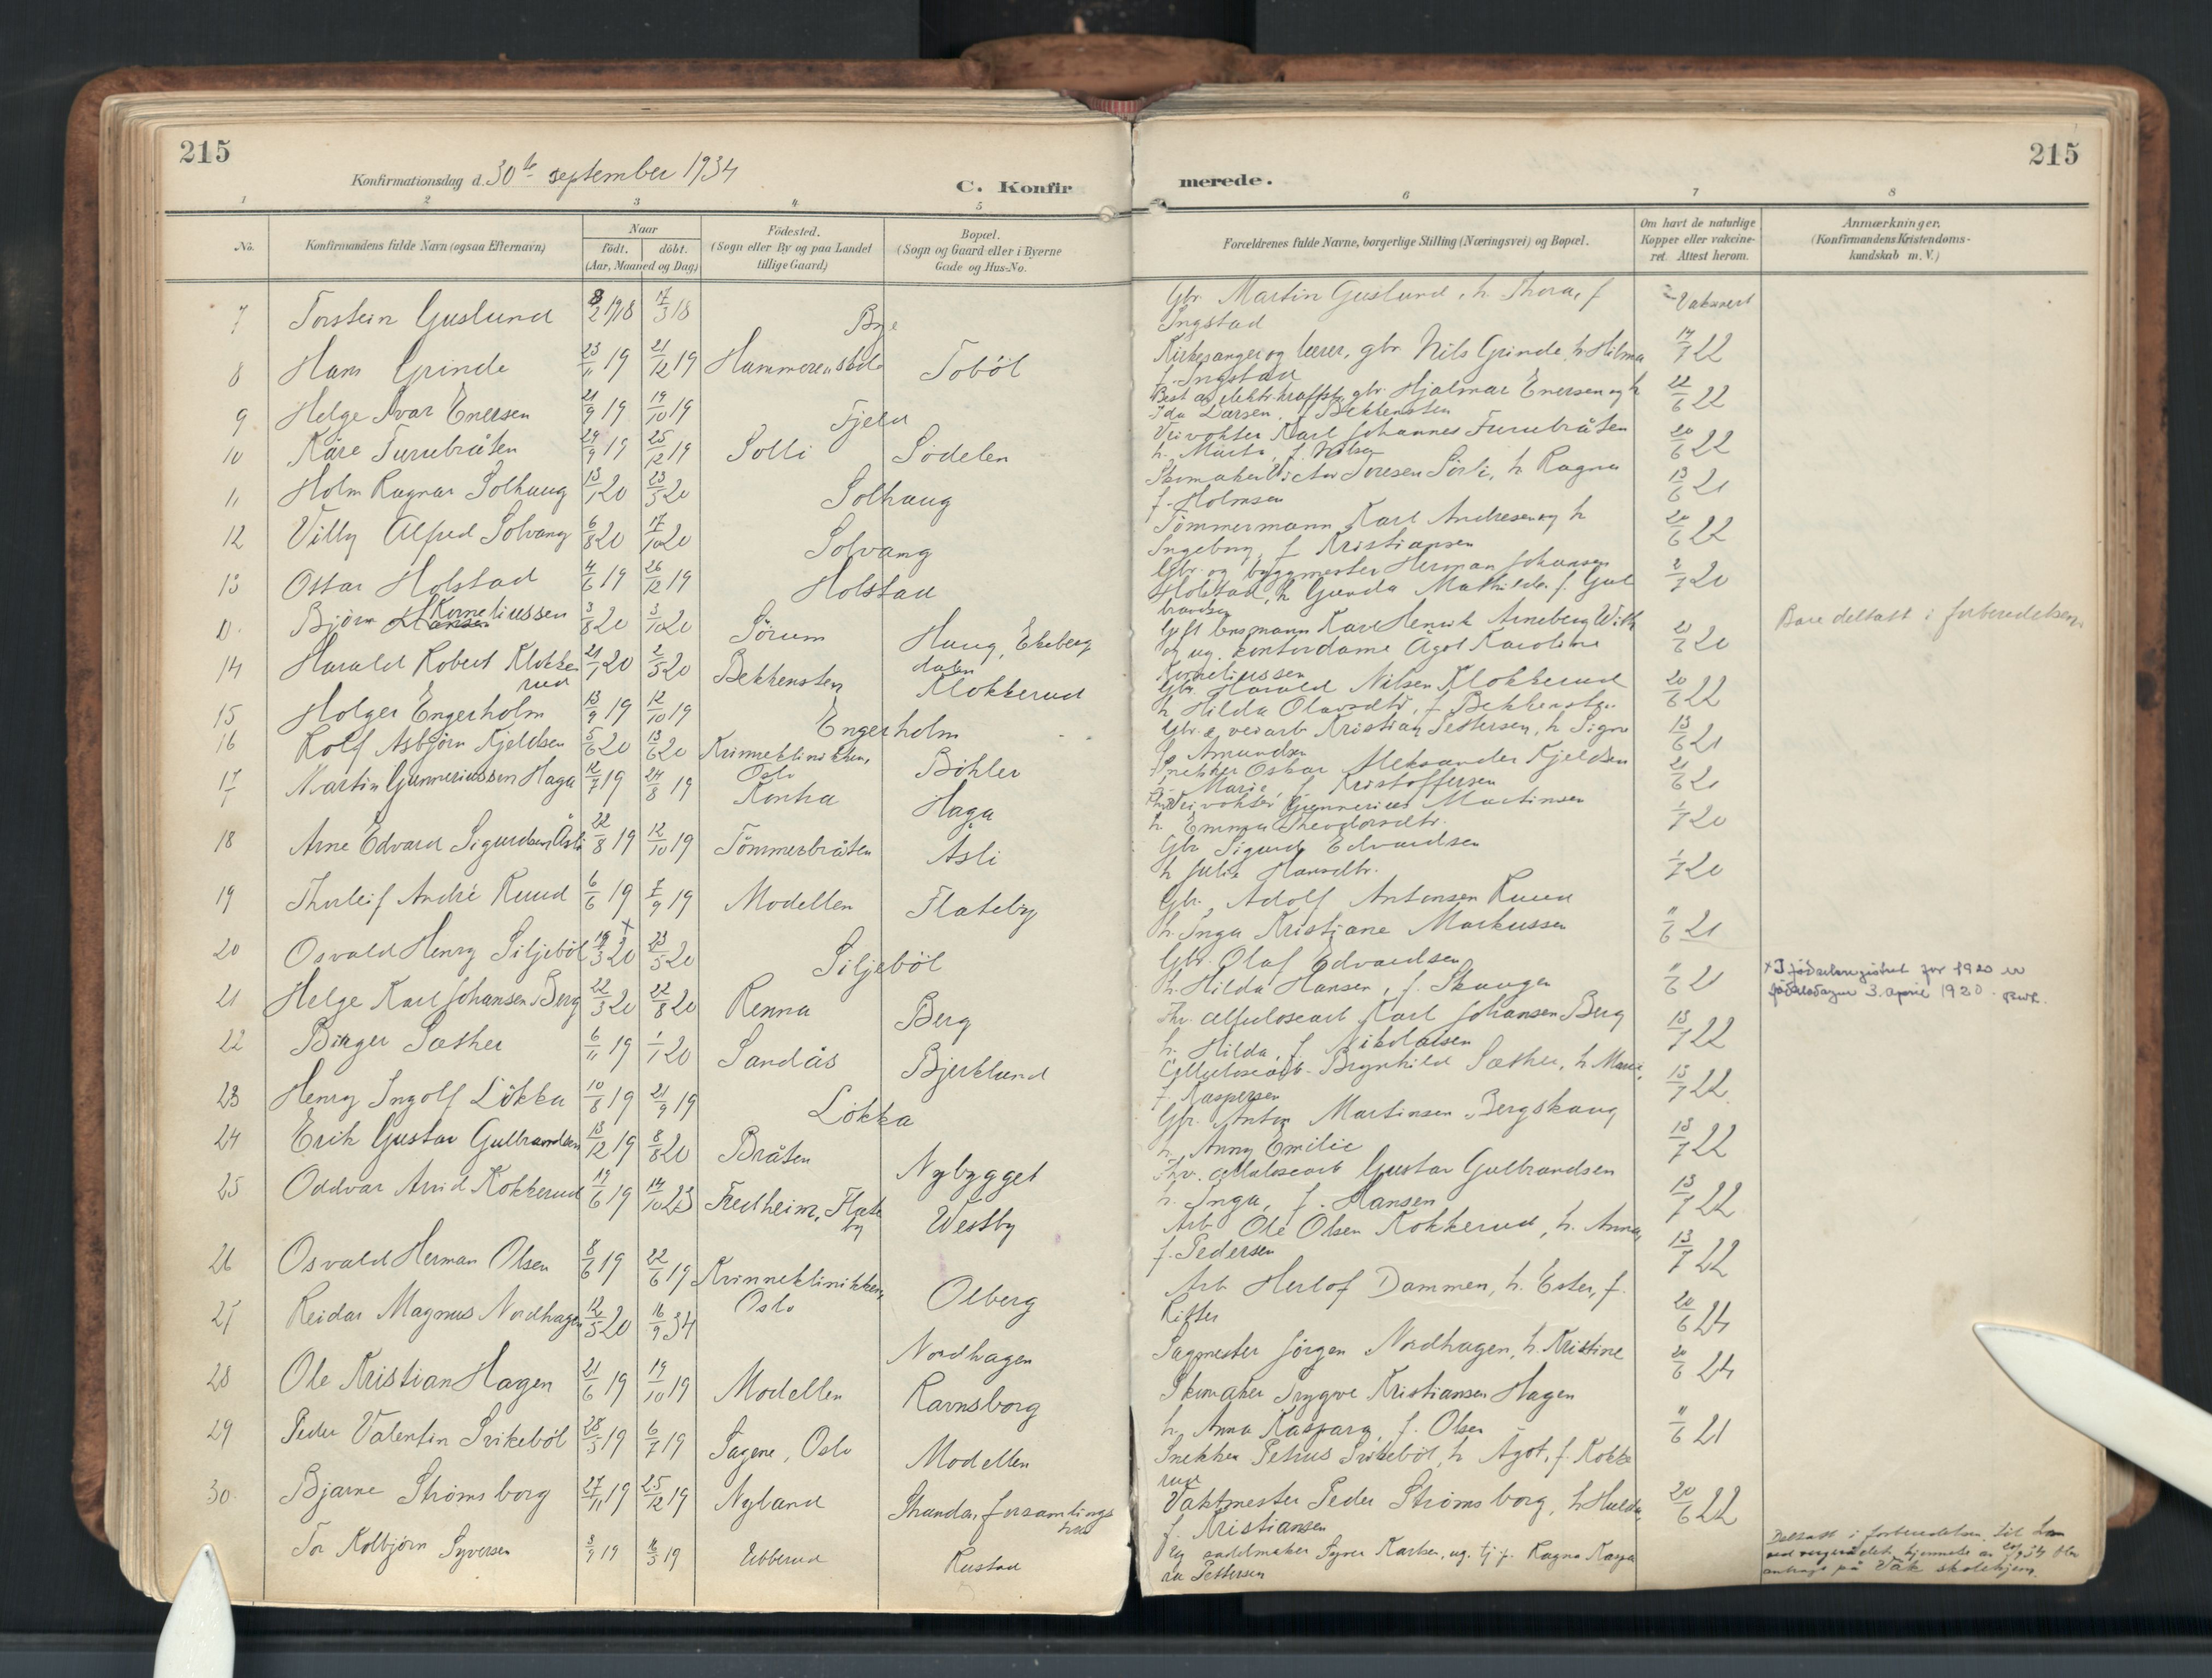 215
Konfirmationsdag d. 30te september 1934
C. Konfir
1 2 3 4 5
No.
Konfirmandens fulde Navn (ogsaa Efternavn)
Naar
født. døbt.
(Aar, Maaned og Dag)
Fødested.
(Sogn eller By og paa Landet
tillige Gaard)
Bopæl.
(Sogn og Gaard eller i Byerne
Gade og Hus-No.
7 Torstein Guslund 8/2 1918 17/3 18 Bye
8 Hans Grinde 23/11 19 21/12 19 Tobøl
9 Helge Ivar Enersen 21/9 19 19/10 19 Fjeld
10 Kåre Furubråten 29/9 19 25/12 19 Solli Sødelen
11 Holm Ragnar Solhaug 13/1 20 23/5 20 Solhaug
12 Villy Alfred Solvang 6/8 20 17/10 20 Solvang
13 Oskar Holstad 4/6 19 26/12 19 Holstad
Bjørn Hansen Korneliussen 3/8 20 3/10 20 Sørum Haug, Ekeberg
dalen
14 Harald Robert Klokke
rud 21/1 20 2/5 20 Bekkensten Klokkerud
15 Holger Engerholm 13/9 19 12/10 19 Engerholm
16 Rolf Asbjørn Kjeldsen 5/6 20 13/6 20 Kvinneklinikken,
Oslo Bøhler
17 Martin Gunneriussen Haga 12/7 19 24/8 19 Kontra Haga
18 Arne Edvard Sigurdsen Åsli 22/8 19 12/10 19 Tømmerbråten Åsli
19 Thorleif André Ruud 6/6 19 7/9 19 Modellen Flateby
20 Osvald Henry Siljebøl 19/3 20 x 23/5 20 Siljebøl
21 Helge Karl Johansen Berg 22/3 20 22/8 20 Renna Berg
22 Birger Sæther 6/11 19 1/1 20 Sandås Bjerklund
23 Henry Ingolf Løkka 10/8 19 21/9 19 Løkka
24 Erik Gustav Gulbrandsen 13/12 19 8/8 20 Bråten Nybygget
25 Oddvar Arvid Kokkerud 19/6 19 14/10 23 Fredheim, Flate
by Westby
26 Osvald Herman Olsen 8/6 19 22/6 19 Kvinneklinikken
Oslo Olberg
27 Reidar Magnus Nordhagen 12/5 20 16/9 34 Nordhagen
28 Ole Kristian Hagen 21/6 19 19/10 19 Modellen Ravnsborg
29 Peder Valentin Svikebøl 28/5 19 6/7 19 Sagene, Oslo Modellen
30 Bjarne Strømsborg 27/11 19 25/12 19 Nyland Stranda, forsamlings
hus
Tor Kolbjørn Syversen 3/9 19 Ebberud Rustad
merede.
215
6 7 8
Forældrenes fulde Navne, borgerlige Stilling (Næringsvei) og Bopæl.
Om havt de naturlige
Kopper eller vakcine-
ret. Attest herom.
Anmærkninger.
(Konfirmandens Kristendoms-
kundskab m. V.)
Gbr. Martin Guslund, h. Thora, f Vaksinert
Ingstad
Kirkesanger og lærer, gbr. Nils Grinde, h. Hilma 14/7 22
f. Ingstad
Best. av elektr. kraftst. gbr. Hjalmar Enersen og h 22/6 22
Ida Larsen, f Bekkensten
Veivokter Karl Johannes Furubråten 20/6 22
h. Marta, f. Nilsen
Skomaker Victor Toresen Sørli, h Ragna 13/6 21
f. Holmsen
Tømmermann Karl Andresen og h 20/6 22
Ingeborg, f Kristiansen
Gbr. og byggmester Herman Johansen 2/7 20
Holstad, h Gunda Mathilde, f. Gul
brandsen
Gift lensmann Karl Henrik Arneberg With 20 Bare deltatt i forberedelsen
og ug. kontordame Ågot Karoline
Korneliussen
Gbr. Harald Nilsen Klokkerud 20/6 22
h Hilda Olavsdtr, f. Bekkensten
Gbr. & veiarb. Kristian Pettersen, h Signe 13/6 21
f. Amundsen
Snekker Oskar Aleksander Kjeldsen 21/6 21
h. Marie, f Kristoffersen
Veivokter Gunnerius Martinsen 1/7 20
h. Emma Theodorsdtr.
Gbr Sigurd Edvardsen 1/7 20
h Julie Hansdtr.
Gbr. Adolf Antonsen Ruud 11/6 21
h. Inga Kristiane Markussen
Gbr. Olaf Edvardsen 11/6 21 x I fødselsregistret for 1920 er
h. Hilda Hansen, f. Skaugen fødselsdagen 3. april 1920.
Fhv. celluloseearb Karl Johansen Berg 13/7 22
h. Hilda, f Nikolaisen
Cellulosearb. Brynhild Sæther, h Marie, 13/7 22
f. Kaspersen
Gbr. Anton Martinsen Bergskaug 13/7 22
h. Anny Emilie
Fhv. cellulosearb Gustav Gulbrandsen 13/7 22
h. Inga, f. Hansen
Arb Ole Olsen Kokkerud, h. Anna, 13/7 22
f. Pedersen
Arb Herlof Dammen, h. Ester, f. 20/6 24
Kitter
Sagmester Jørgen Nordhagen, h. Kristine 20/6 24
Skomaker Trygve Kristiansen Hagen
h. Anna Kaspara, f. Olsen 11/6 21
Snekker Petrus Svikebøl, h Ågot, f. Kokke
rud
Vaktmester Peder Strømsborg, h Hulda, 20/6 22
f. Kristiansen
Ug sadelmaker Syver Karlsen, ug. tj.p. Ragna Kaspa
ra Pettersen
Deltatt i forberedelsen
antragt på Våk skolehjem.